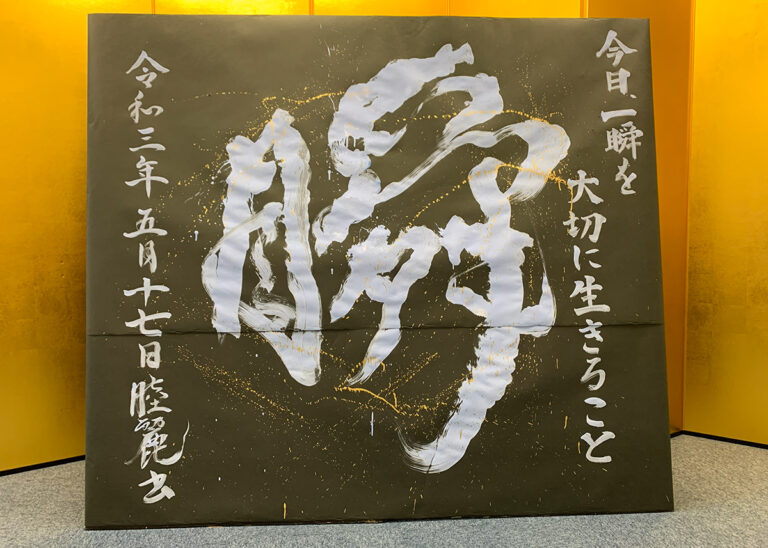 今日、一瞬を
大切に生きること
瞬
令和三年 五月十七日 睦麗書